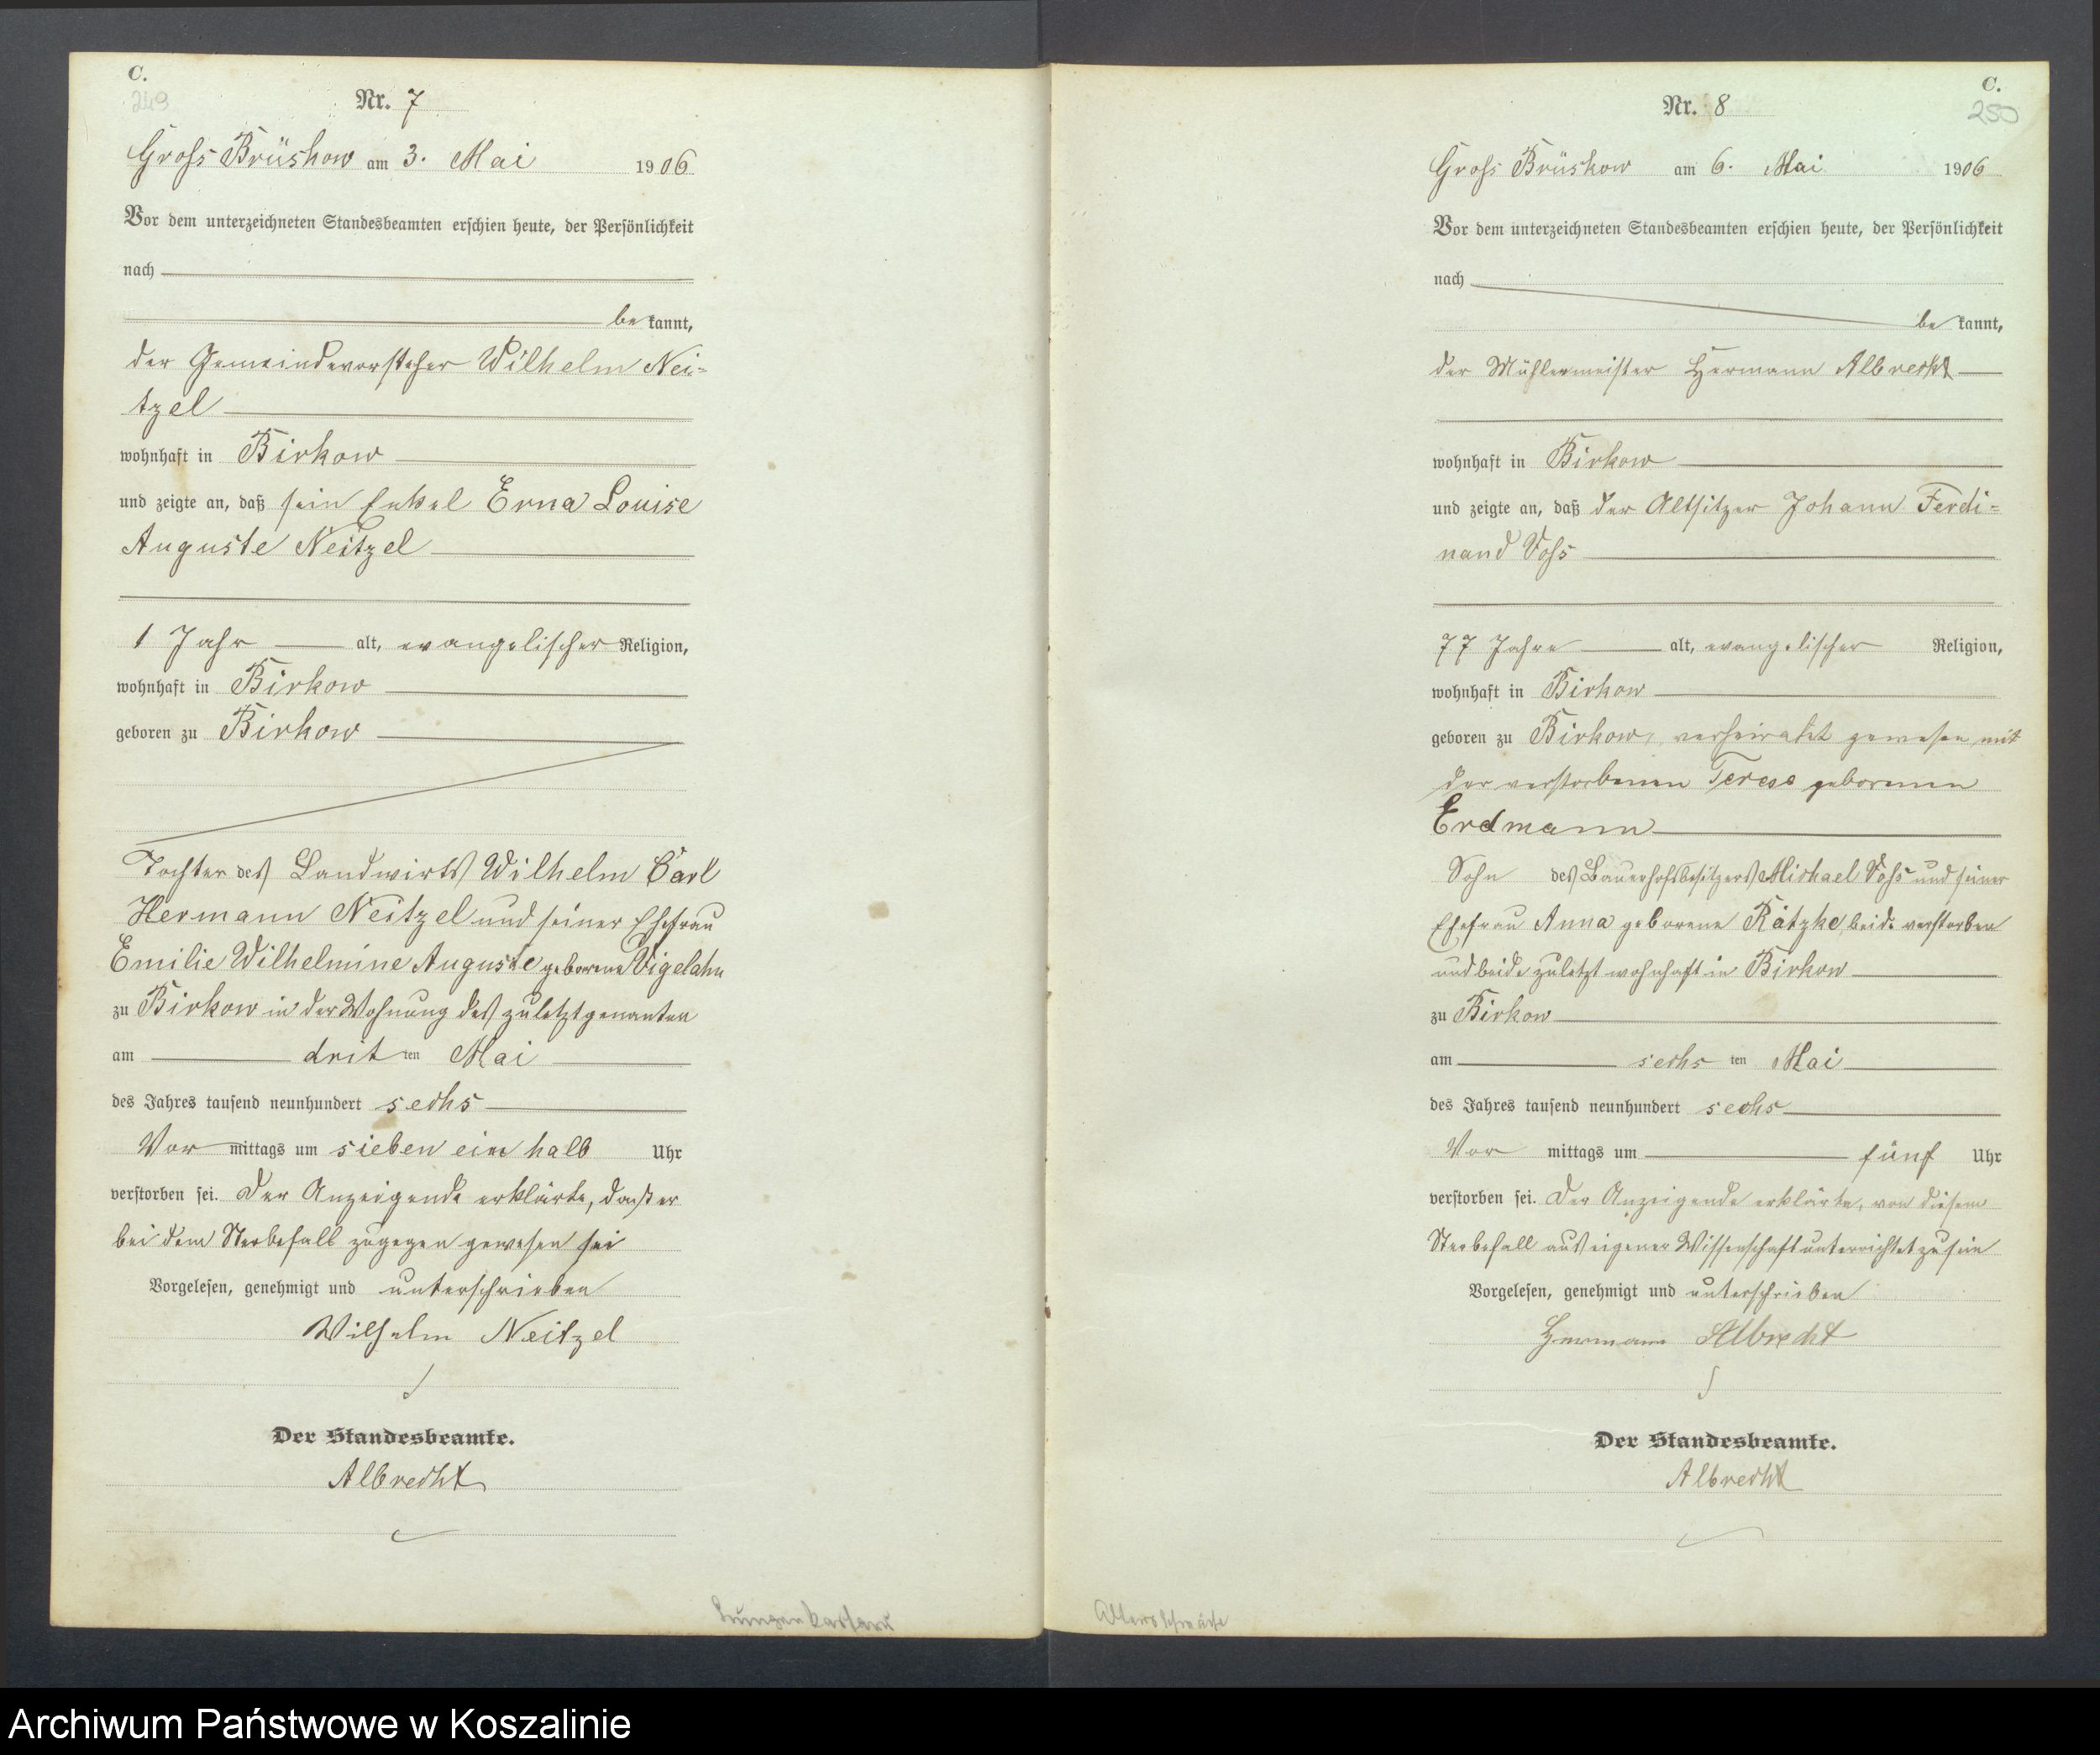 C.
249
Nr. 7
Gross Brüskow am 3. Mai 1906
Vor dem unterzeichneten Standesbeamten erschien heute, der Persönlichkeit
nach
be kannt,
der Gemeindevorsteher Wilhelm Nei-
tzel
wohnhaft in Birkow
und zeigte an, daß sein Enkel Erna Louise
Auguste Neitzel
1 Jahr alt, evangelischer Religion,
wohnhaft in Birkow
geboren zu Birkow
Tochter des Landwirts Wilhelm Carl
Hermann Neitzel und seiner Ehefrau
Emilie Wilhelmine Auguste geborene Vigelahn
zu Birkow in der Wohnung des zuletztgenanten
am drit ten Mai
des Jahres tausend neunhundert sechs
Vor mittags um sieben ein halb Uhr
verstorben sei. Der Anzeigende erklärte, daß er
bei dem Sterbefall zugegen gewesen sei
Vorgelesen, genehmigt und unterschrieben
Wilhelm Neitzel
Der Standesbeamte.
Albrecht
Lungenkatharr
C.
250
Nr. 8
Gross Brüskow am 6. Mai 1906
Vor dem unterzeichneten Standesbeamten erschien heute, der Persönlichkeit
nach
be kannt,
der Mühlenmeister Hermann Albrecht
wohnhaft in Birkow
und zeigte an, daß der Altsitzer Johann Ferdi-
nand Voss
77 Jahre alt, evangelischer Religion,
wohnhaft in Birkow
geboren zu Birkow, verheiratet gewesen mit
der verstorbenen Terese geborenen
Erdmann
Sohn des Bauerhofsbesitzers Michael Voss und seiner
Ehefrau Anna geborene Rätzke, beide verstorben
und beide zuletzt wohnhaft in Birkow
zu Birkow
am sechs ten Mai
des Jahres tausend neunhundert sechs
Vor mittags um fünf Uhr
verstorben sei. Der Anzeigende erklärte, von diesem
Sterbefall aus eigener Wissenschaft unterrichtet zu sein
Vorgelesen, genehmigt und unterschrieben
Hermann Albrecht
Der Standesbeamte.
Albrecht
Altersschwäche
Archiwum Państwowe w Koszalinie